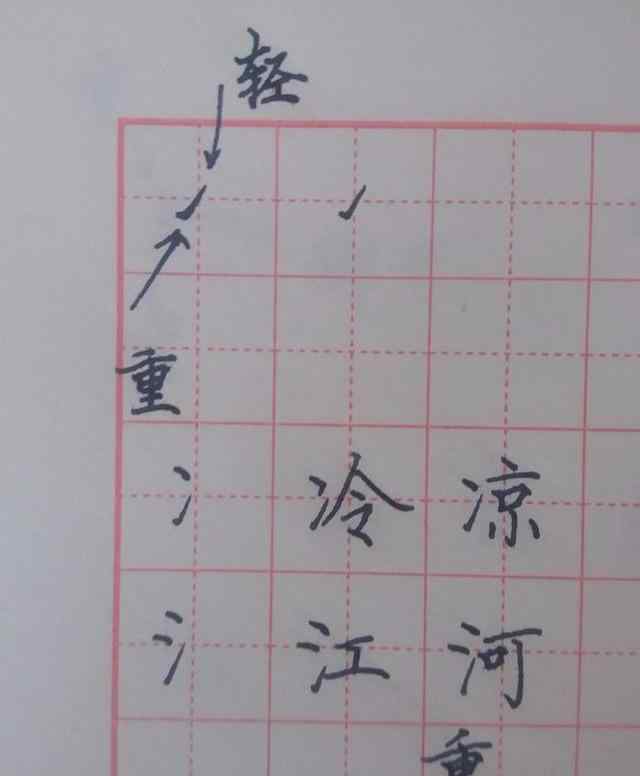 轻
重
冫 冷 凉
氵 江 河
重